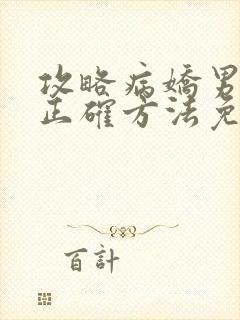 攻略病嬌男
正確方法免
百計